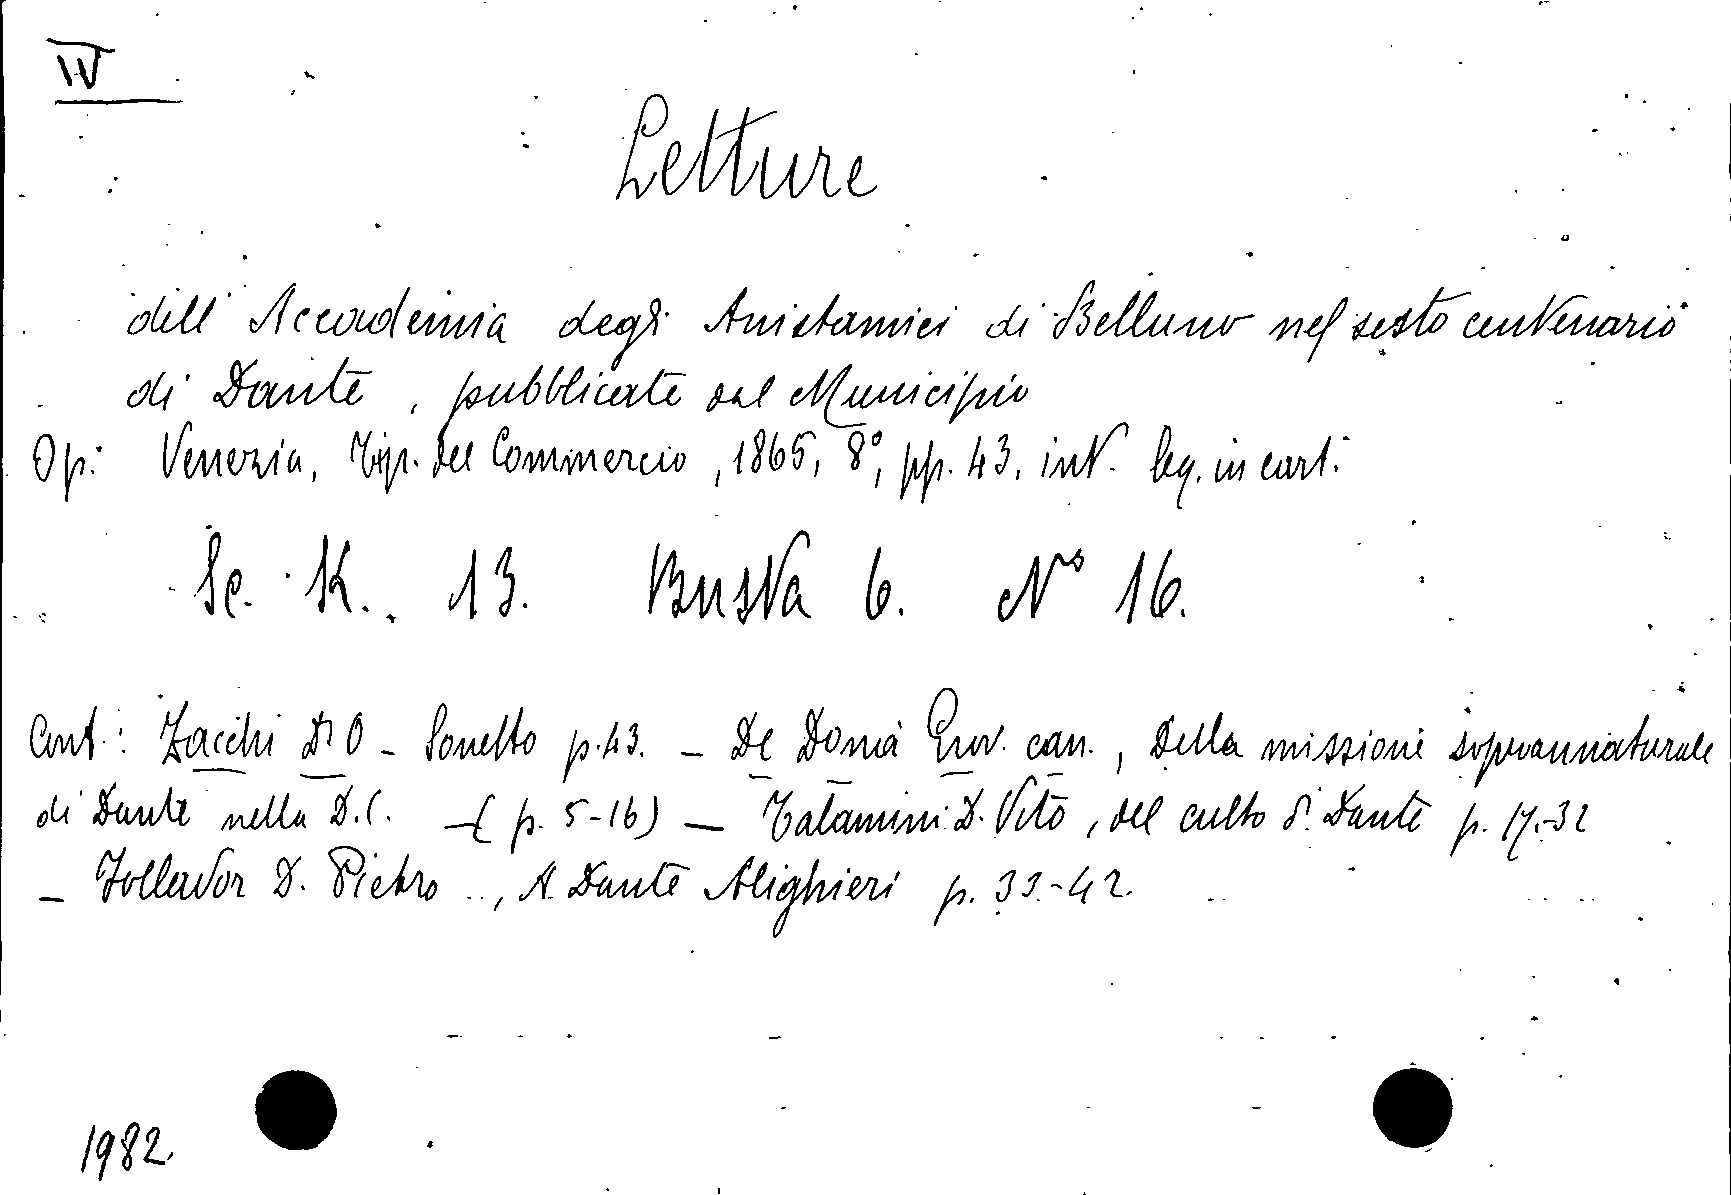 IV
Letture
dell' Accademia degli Anistamici di Belluno nel sesto centenario
di Dante, pubblicate dal Municipio
Op: Venezia, Tip. del Commercio, 1865, 8°, pp. 43. int. leg. in cart.
Sc. K. 13. Busta 6. N° 16.
Cont: Zacchi Dr O - Sonetto p. 43. - De Donà Giov. can., Della missione soprannaturale
di Dante nella D.C. - (p. 5-16) - Talamini D. Vito, del culto di Dante p. 17-32
- Follador D. Pietro, A Dante Alighieri p. 33-42.
1982